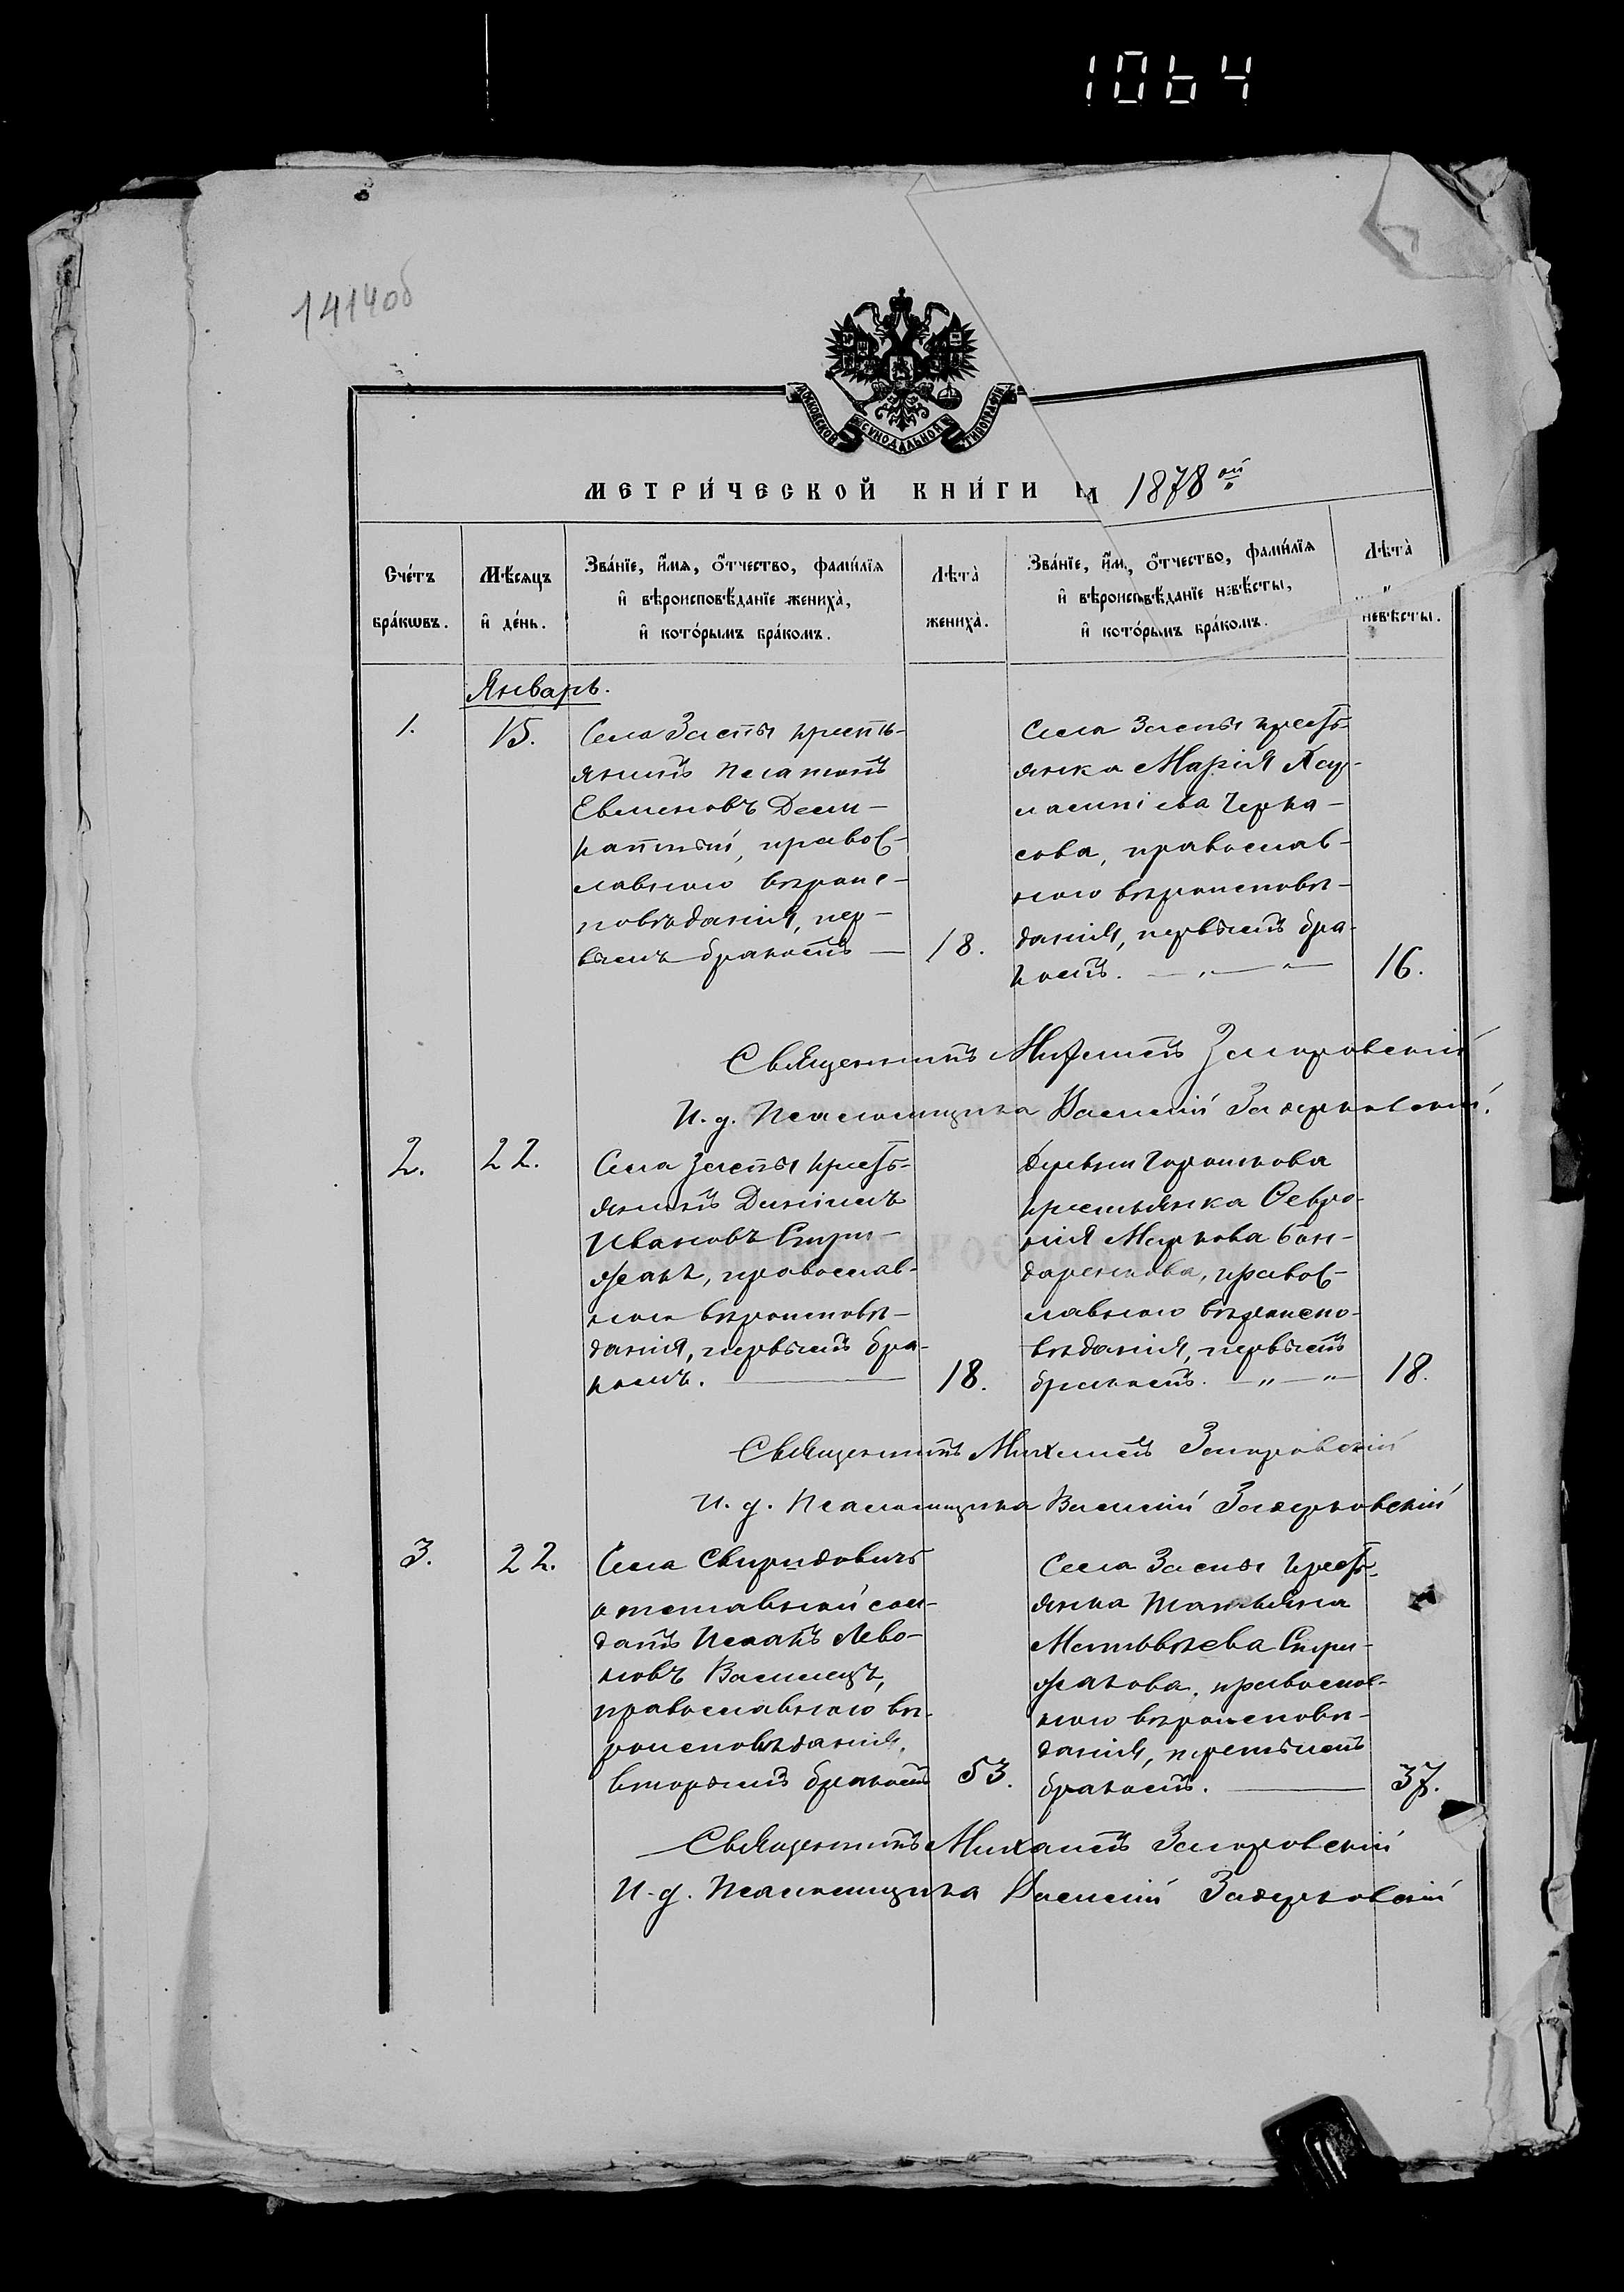 1064
1414об
МОСКОВСКОЙ СѴНОДАЛЬНОЙ ТИПОГРАФІИ
МЕТРИ́ЧЕСКОЙ КНИ́ГИ 1878 ой
Сче́тъ бра́кѡвъ.
Мѣ́сяцъ и де́нь.
Зва́нїе, и́мѧ, ѻ́тчество, фами́лїѧ
и вѣроисповѣ́данїе жениха̀,
и кото́рымъ бра́комъ.
Лѣта̀ жениха̀.
Зва́нїе, и́м, ѻ́тчество, фами́лїѧ
и вѣроисповѣ́данїе невѣ́сты,
и кото́рымъ бра́комъ.
Лѣта̀ невѣ́сты.
Январь.
1. 15.
Села Заспы кресть-
янинъ Платонъ
Евменовъ
правос-
лавного вѣроис-
повѣданія, пер-
вымъ бракомъ — 18.
Села Заспы кресть-
янка Марія
Черка-
сова, православ-
ного вѣроисповѣ-
данія, первымъ бра-
комъ. 16.
Священникъ Михаилъ
И. д. Псаломщика Василій
2. 22.
Села Заспы кресть-
янинъ Даніилъ
Ивановъ Стри-
жакъ, православ-
ного вѣроисповѣ-
данія, первымъ бра-
комъ. 18.
Деревни Горошкова
крестьянка Февро-
нія Маркова Бон-
даренкова, правос-
лавного вѣроиспо-
вѣданія, первымъ
бракомъ. 18.
Священникъ Михаилъ
И. д. Псаломщика Василій
3. 22.
Села Свиридовичъ
отставной сол-
датъ Исаакъ Лево-
новъ Василецъ,
православного вѣ-
роисповѣданія,
вторымъ бракомъ 53.
Села Заспы кресть-
янка Татьяна
Матвѣева Стри-
жакова, православ-
ного вѣроисповѣ-
данія, третьимъ
бракомъ. 37.
Священникъ Михаилъ
И. д. Псаломщика Василій